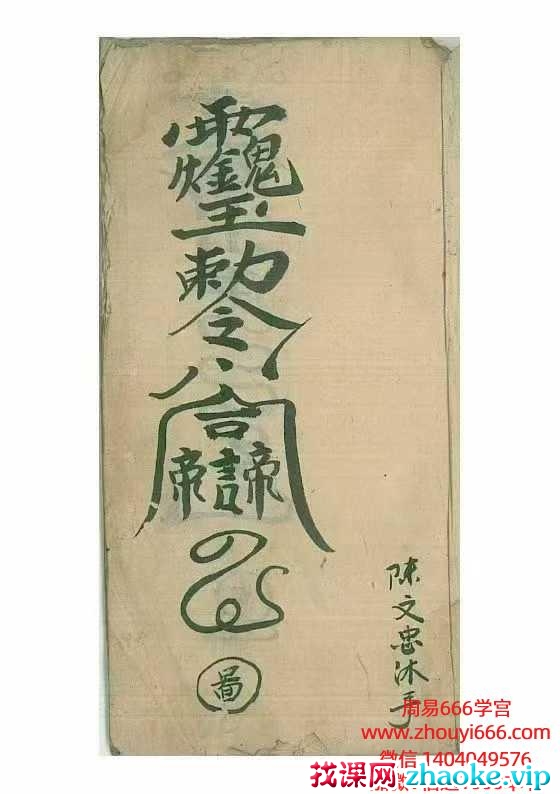 玉
敕令
合
帝言帝
啚
陈文忠沐手
周易666学宫
www.zhouyi666.com
微信 1404049576
找课网 zhaoke.vip